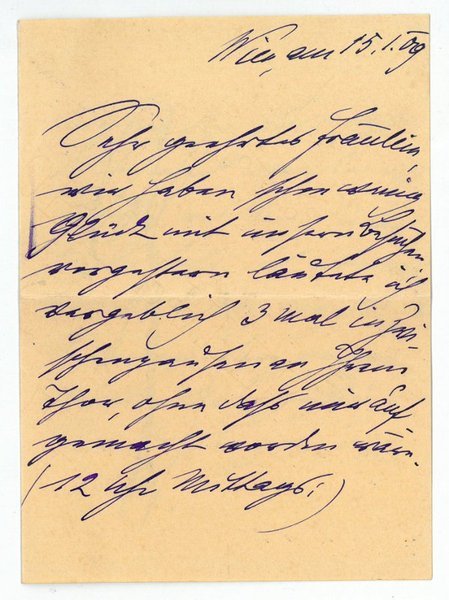 Wien, am 15.1.09
Sehr geehrtes Fräulein,
wir haben schon wenig
Glück mit unsern Besuchen
vorgestern läutete ich
vergeblich 3 mal in Zwi
schenpausen an Ihrem
Thor, ohne daß mir auf
gemacht worden wäre.
(12 Uhr Mittags!)